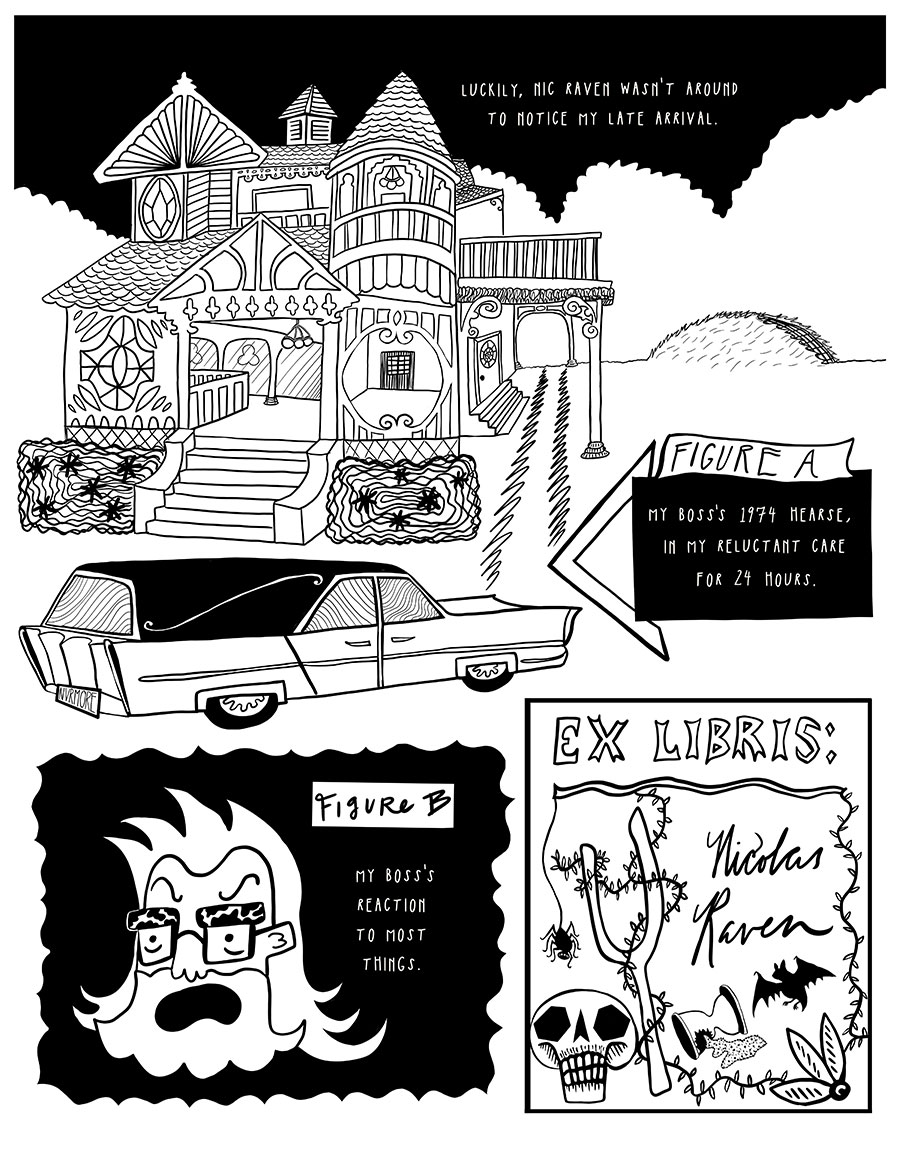 LUCKILY, NIC RAVEN WASN'T AROUND
TO NOTICE MY LATE ARRIVAL.
FIGURE A
MY BOSS'S 1974 HEARSE,
IN MY RELUCTANT CARE
FOR 24 HOURS.
NVRMORE
FIGURE B
MY BOSS'S
REACTION
TO MOST
THINGS.
EX LIBRIS:
Nicolas
Raven